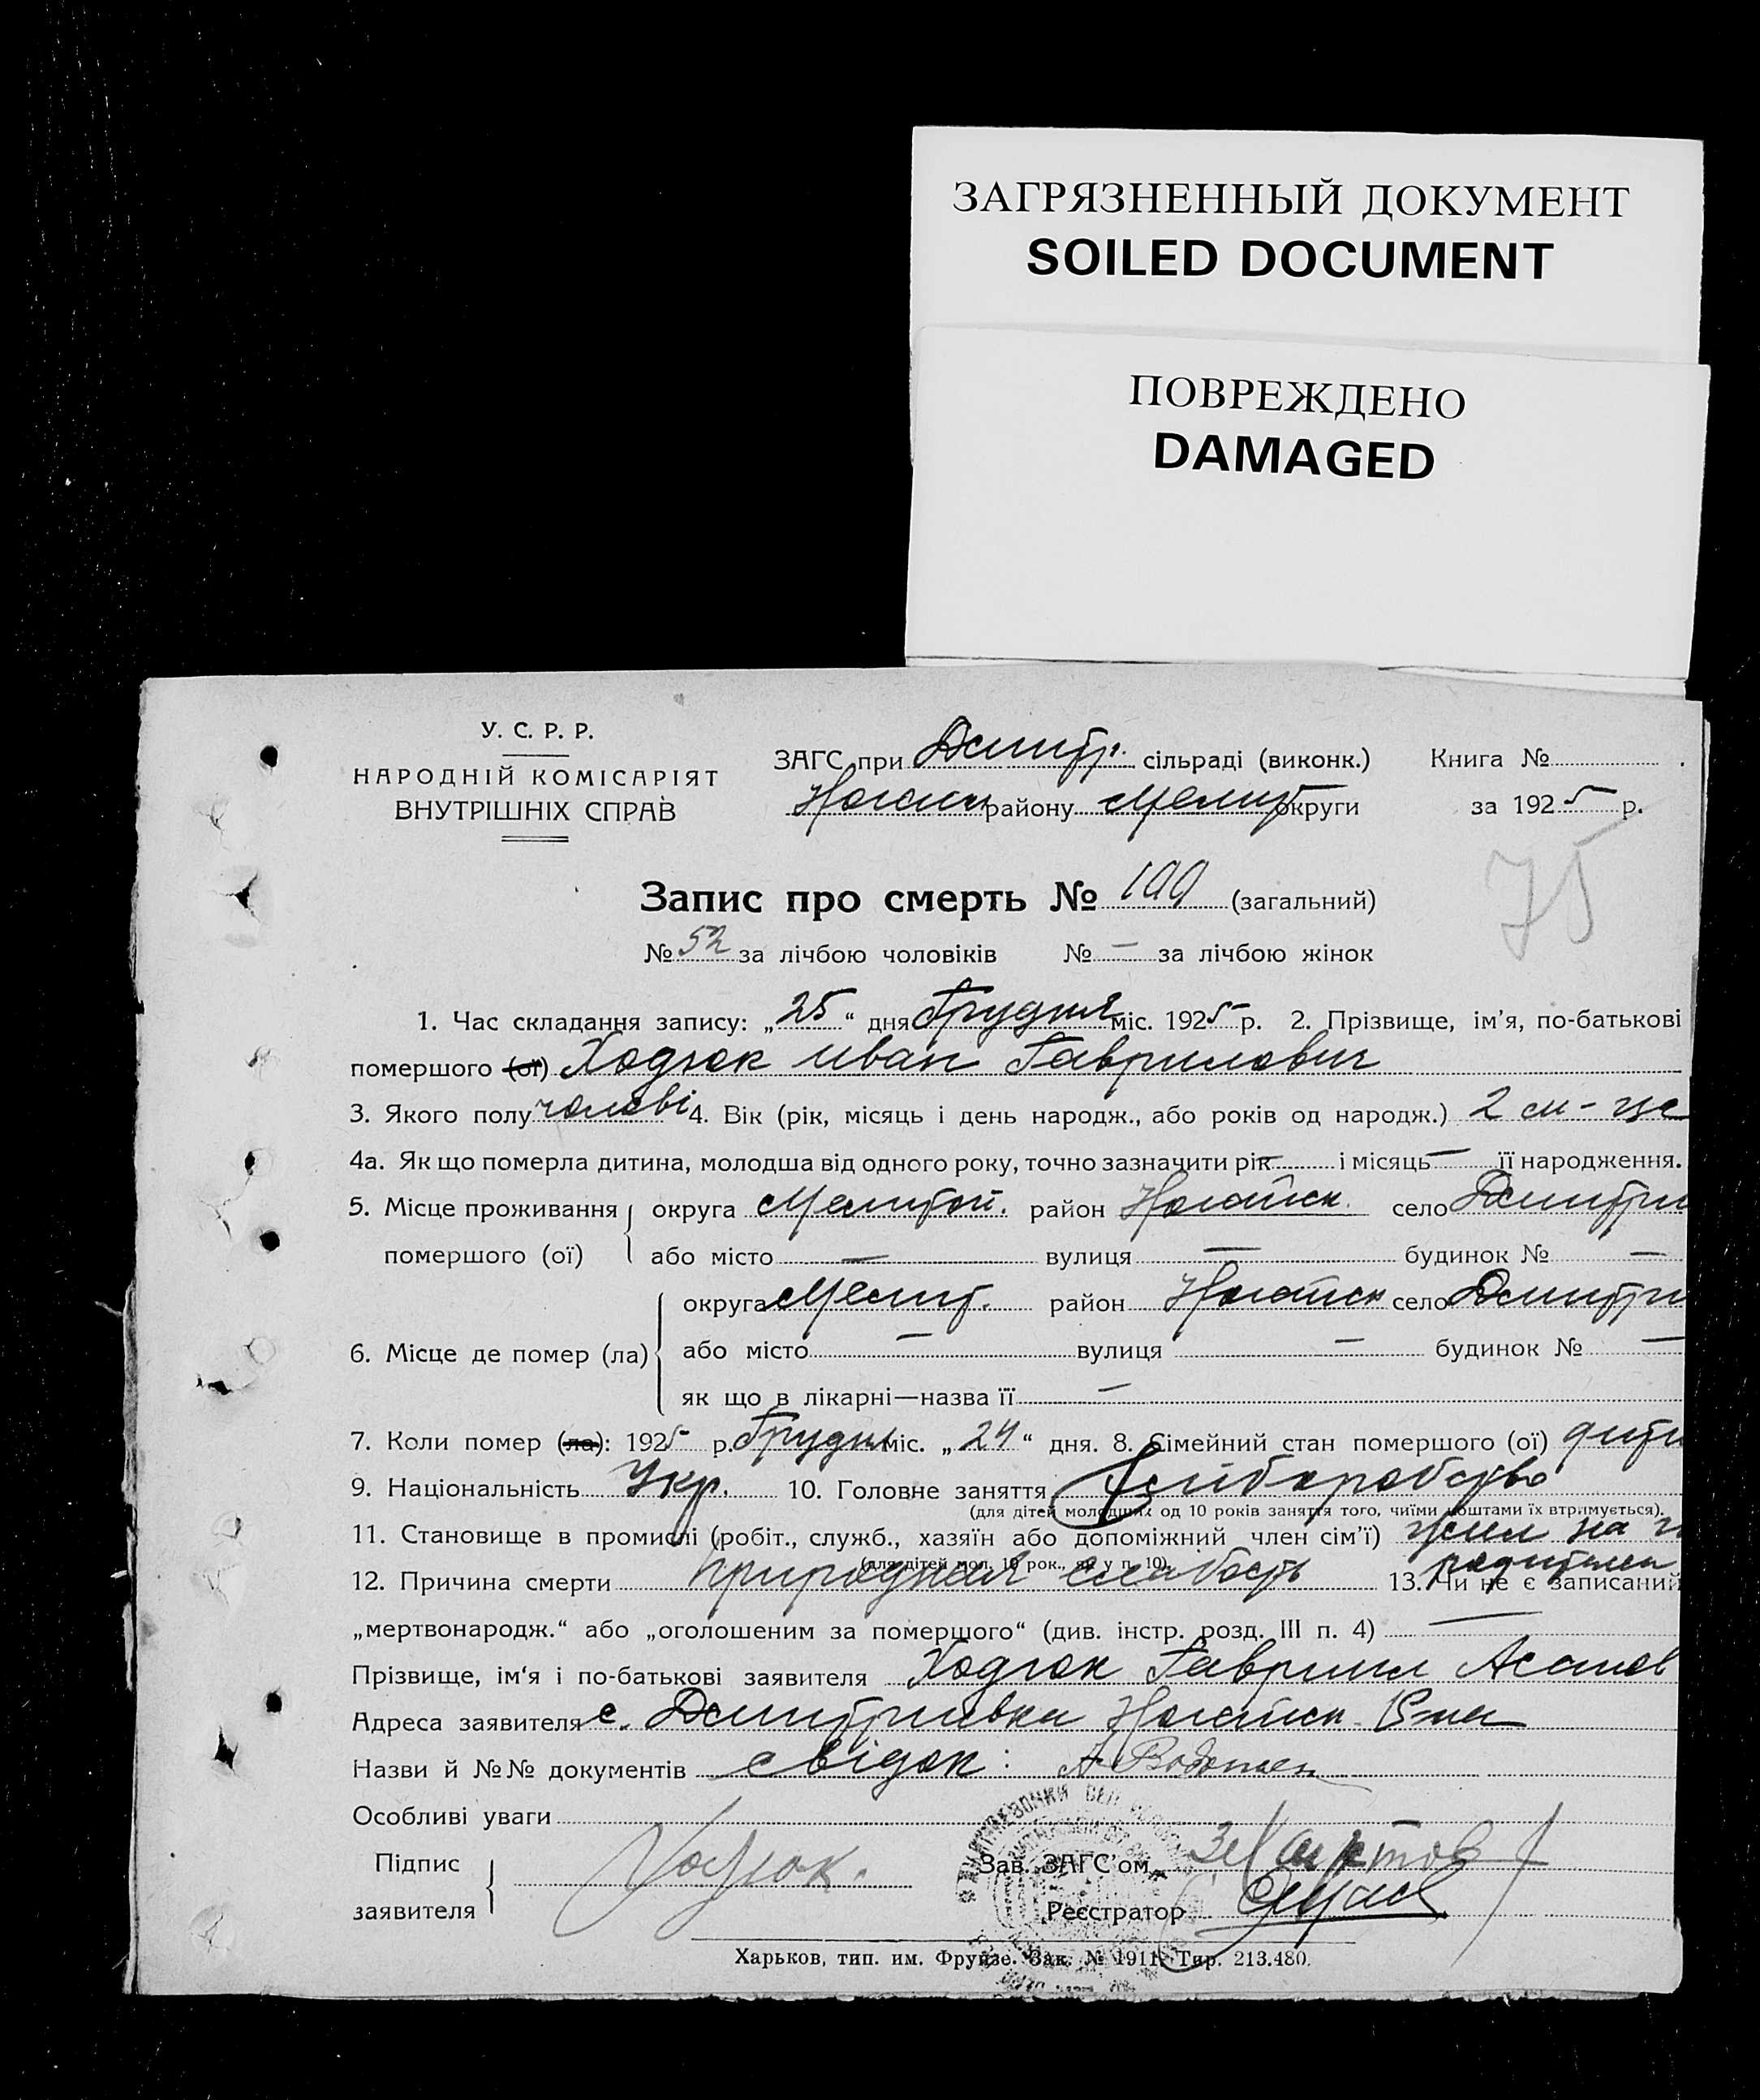 ЗАГРЯЗНЕННЫЙ ДОКУМЕНТ
SOILED DOCUMENT
ПОВРЕЖДЕНО
DAMAGED
У. С. Р. Р.
НАРОДНІЙ КОМІСАРІЯТ
ВНУТРІШНІХ СПРАВ
ЗАГС при Дмитр. сільраді (виконк.) Книга №
району Мелит округи за 1925 р.
75
Запис про смерть № 100 (загальний)
№ 52 за лічбою чоловіків № — за лічбою жінок
1. Час складання запису: „25“ дня Грудня міс. 1925 р. 2. Прізвище, ім'я, по-батькові
помершого (ої) Ходюк Иван Гаврилович
3. Якого полу чоловi 4. Вік (рік, місяць і день народж., або років од народж.) 2 м-це
4а. Як що померла дитина, молодша від одного року, точно зазначити рік — і місяць — її народження.
5. Місце проживання округа Мелитоп. район Ногайск. село Дмитри
помершого (ої) або місто — вулиця — будинок № —
округа Мелит. район Ногайск село Дмитри
6. Місце де помер (ла) або місто — вулиця — будинок № —
як що в лікарні—назва її —
7. Коли помер (ла): 1925 р. Грудня міс. „24“ дня. 8. Сімейний стан помершого (ої) дити
9. Національність Укр. 10. Головне заняття Хліборобство
(для дітей молодших од 10 років заняття того, чиїми коштами їх втримується).
11. Становище в промислі (робіт., служб., хазяїн або допоміжний член сім'ї) жил на
(для дітей мол. 10 рок., як у п. 10) родители
12. Причина смерти природная слабость 13. Чи не є записаний
„мертвонародж.“ або „оголошеним за помершого“ (див. інстр. розд. III п. 4) —
Прізвище, ім'я і по-батькові заявителя Ходюк Гавриил
Адреса заявителя с. Дмитривки Ногайск. Р-на
Назви й №№ документів свідок: А
Особливі уваги
Підпис
заявителя Ходюк.
Зав. ЗАГС'ом
Реєстратор
Харьков, тип. им. Фрунзе. Зак. № 1911. Тир. 213.480.